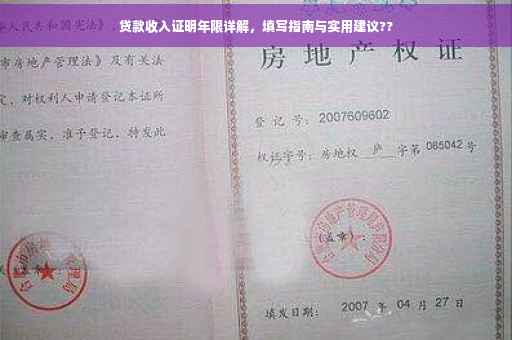 贷款收入证明年限详解，填写指南与实用建议??
人民共和国宪法》、
市房地产管理法》及有关法
定，对权利人申请登记本证所
审查属实，准予登记，特发此
房地产权证
登 记 号：2007609602
权证字号：房地权 庐 字第 085042 号
（盖章）：
填发日期： 2007 年 04 月 27 日